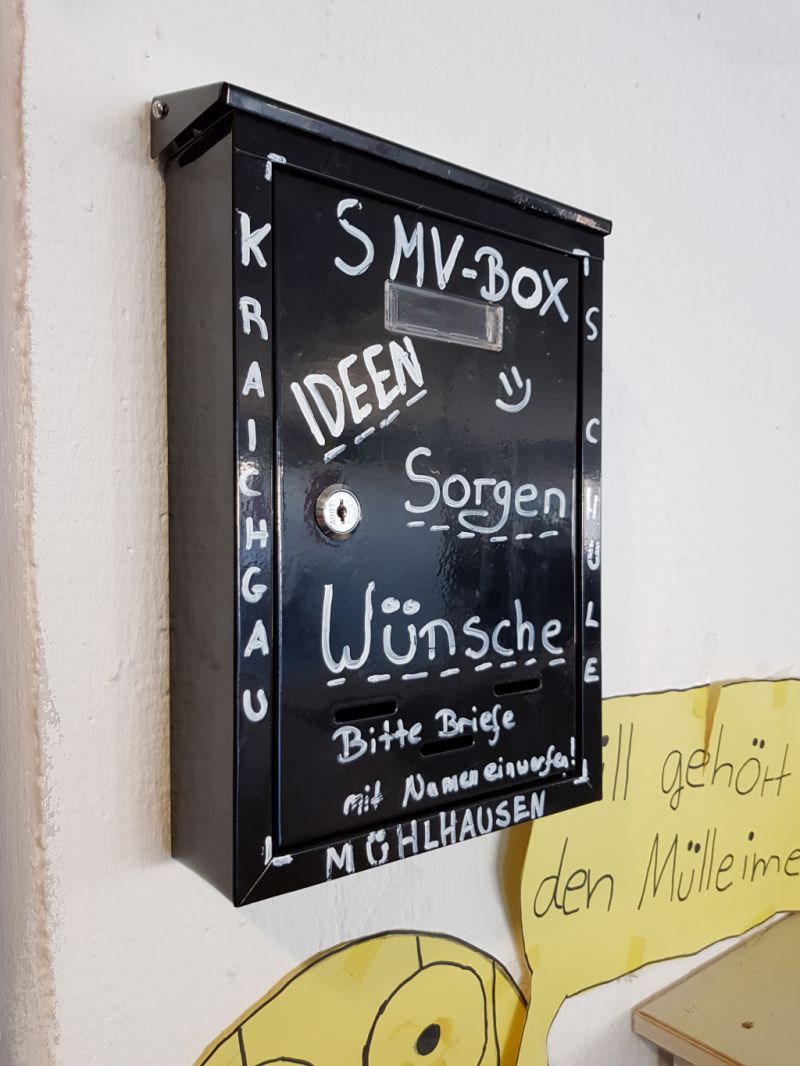 SMV-BOX
IDEEN
Sorgen
Wünsche
Bitte Briefe
mit Namen einwerfen!
KRAICHGAU
SCHULE
MÜHLHAUSEN
ll gehört
den Mülleime